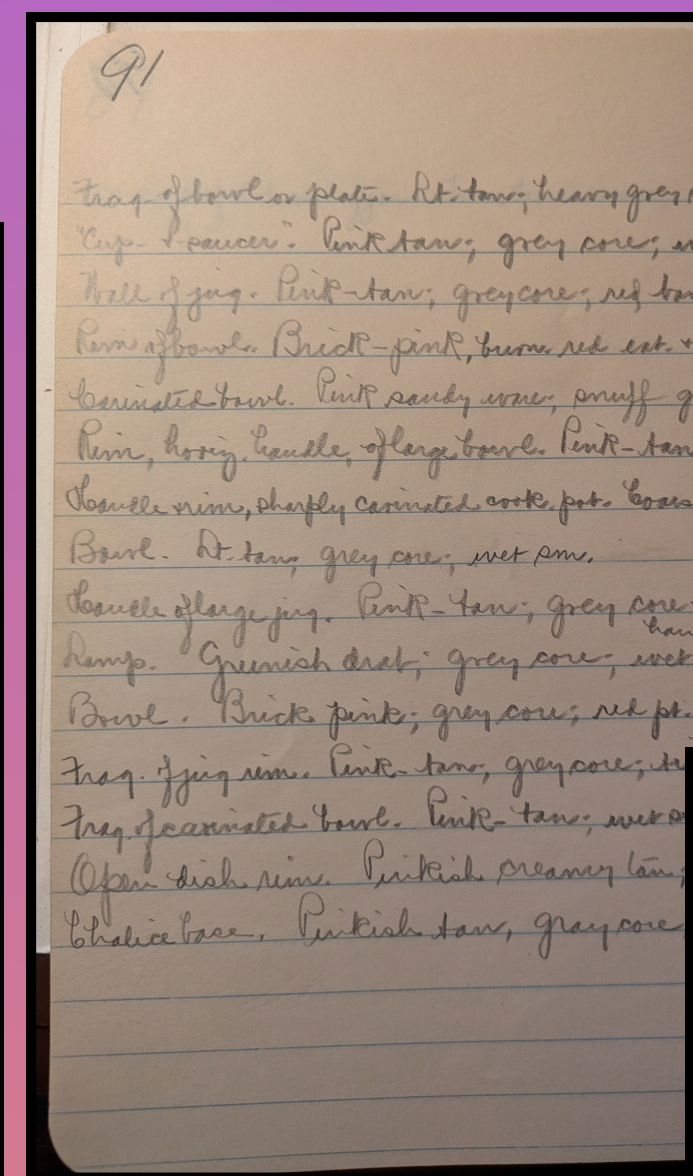 91
Frag. of bowl or plate. Lt. tan; heavy grey
"Cup-&-saucer". Pink tan; grey core;
Wall of jug. Pink-tan; grey core; red
Rim of bowl. Brick-pink, burn. red ext. +
Carinated bowl. Pink sandy ware; snuff
Rim, horiz. handle, of large bowl. Pink-tan
Handle & rim, sharply carinated cook. pot.
Bowl. Lt. tan; grey core; wet sm.
Handle of large jug. Pink-tan; grey core
Lamp. Greenish drab; grey core; wet
Bowl. Brick pink; grey core; red pt.
Frag. of jug rim. Pink-tan; grey core;
Frag. of carinated bowl. Pink-tan; wet
Open dish rim. Pinkish creamy tan;
Chalice base. Pinkish tan, gray core